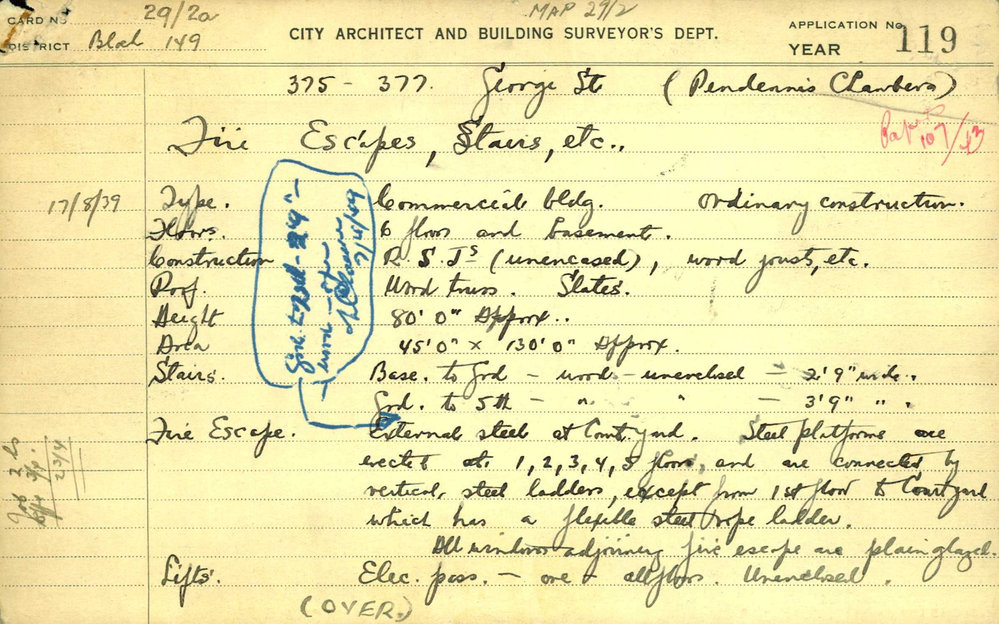 CARD No 29/2a MAP 29/2
DISTRICT Block 149
CITY ARCHITECT AND BUILDING SURVEYOR'S DEPT.
APPLICATION No 119
YEAR
375 - 377. George St (Pendennis Chambers)
Fire Escapes, Stairs, etc..
107/43
17/8/39 Type. Commercial bldg. Ordinary construction.
Floors. 6 floors and basement.
Construction R.S.Js (unencased), wood joists, etc.
Roof. Wood truss. Slates.
Height 80' 0" Approx..
Area 45'0" x 130'0" Approx.
Stairs. Base. to Grd - wood - unenclosed - 2'9" wide.
Grd. to 5th - " " - 3'9" " .
Grd. to
wood
7/4/49
Fire Escape. External steel at Courtyard. Steel platforms are
erected at 1, 2, 3, 4, 5 floors, and are connected by
vertical steel ladders, except from 1st floor to Courtyard
which has a flexible steel rope ladder.
All windows adjoining fire escape are plain glazed.
Lifts. Elec. pass. - one - all floors. Unenclosed.
(OVER.)